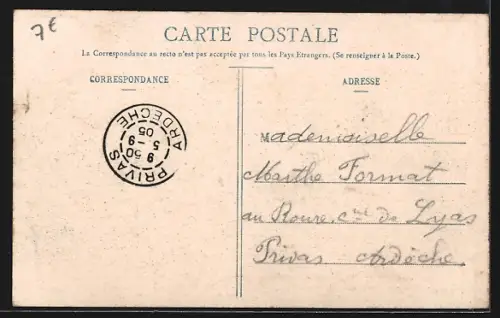 7€
CARTE POSTALE
La Correspondance au recto n'est pas acceptée par tous les Pays Etrangers. (Se renseigner à la Poste.)
CORRESPONDANCE
ADRESSE
PRIVAS
9 50
5 - 9
05
ARDECHE
Mademoiselle
Marthe Format
au Roure, cne de Lyas
Privas Ardèche.